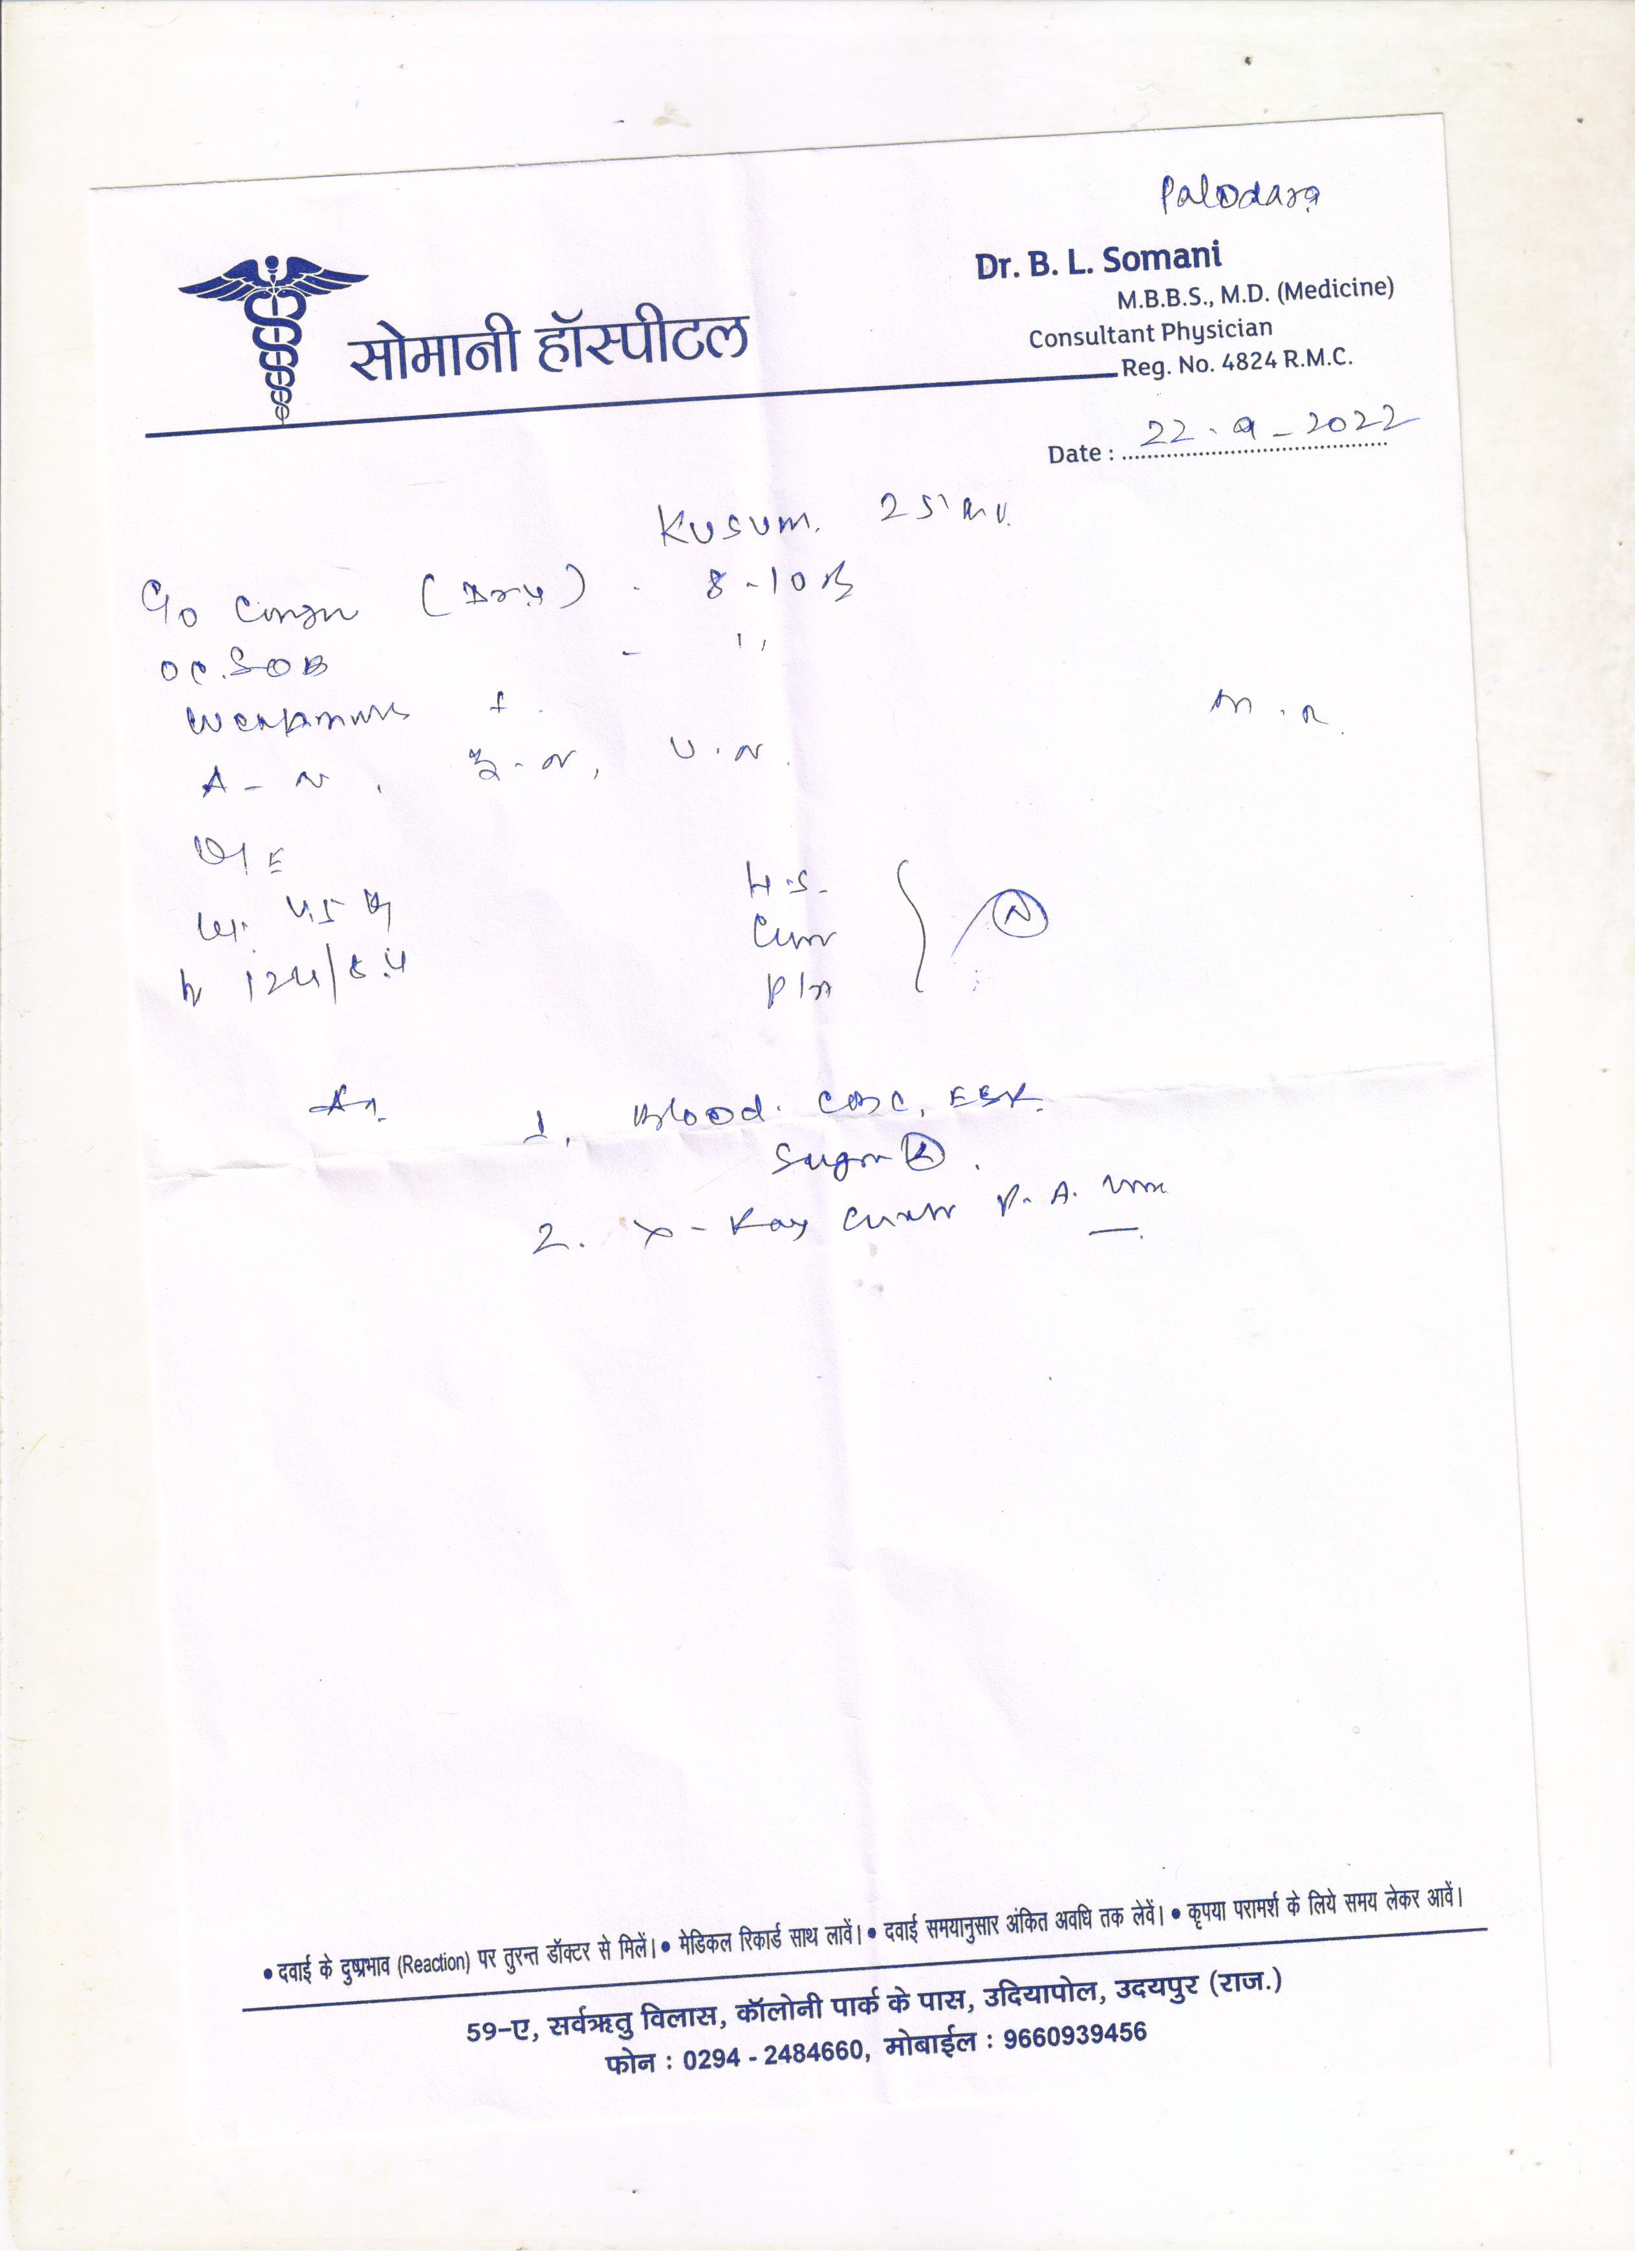 Palodara
Dr. B. L. Somani
M.B.B.S., M.D. (Medicine)
Consultant Physician
Reg. No. 4824 R.M.C.
सोमानी हॉस्पीटल
Date : 22-9-2022
Kusum. 25
C/o (Dry) - 8-10
OC. SOB - "
Weakness +
A - N, U.N.
M.R.
O/E
Wt. 45 Kg
H.S.
124/84
P/A
N
1. Blood. CBC, ESR.
Sugar R.
2. X-Ray Chest P.A. View
• दवाई के दुष्प्रभाव (Reaction) पर तुरन्त डॉक्टर से मिलें। • मेडिकल रिकार्ड साथ लावें। • दवाई समयानुसार अंकित अवधि तक लेवें। • कृपया परामर्श के लिये समय लेकर आवें।
59-ए, सर्वऋतु विलास, कॉलोनी पार्क के पास, उदियापोल, उदयपुर (राज.)
फोन : 0294 - 2484660, मोबाईल : 9660939456